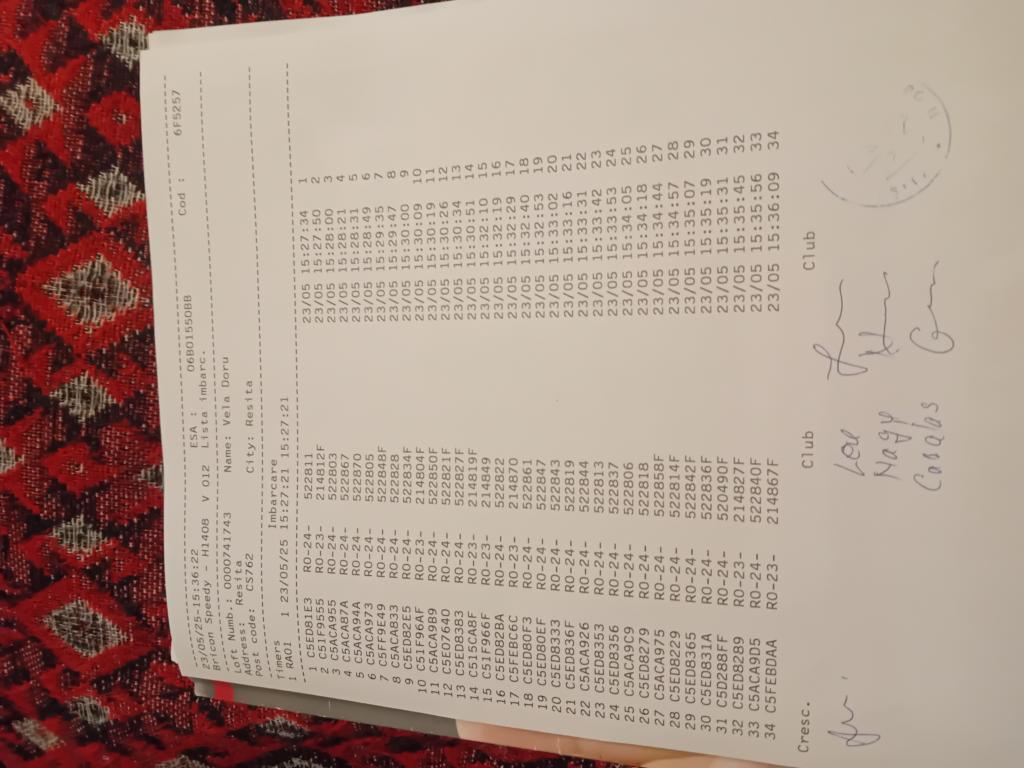 23/05/25-15:36:22 ESA : 06B01550BB Cod : 6F5257
Bricon Speedy - H1408 V 012 Lista imbarc.
Loft Numb.: 0000741743 Name: Vela Doru
Address: Resita
Post code: CS762 City: Resita
Timers Imbarcare
1 RA01 1 23/05/25 15:27:21 15:27:21
1 C5ED81E3 RO-24- 522811 23/05 15:27:34 1
2 C51F9555 RO-23- 214812F 23/05 15:27:50 2
3 C5ACA955 RO-24- 522803 23/05 15:28:00 3
4 C5ACA87A RO-24- 522867 23/05 15:28:21 4
5 C5ACA94A RO-24- 522870 23/05 15:28:31 5
6 C5ACA973 RO-24- 522805 23/05 15:28:49 6
7 C5FF9E49 RO-24- 522848F 23/05 15:29:35 7
8 C5ACA833 RO-24- 522828 23/05 15:29:47 8
9 C5ED82E5 RO-24- 522834F 23/05 15:30:00 9
10 C51F96AF RO-23- 214804F 23/05 15:30:09 10
11 C5ACA9B9 RO-24- 522850F 23/05 15:30:19 11
12 C5E07640 RO-24- 522821F 23/05 15:30:26 12
13 C5ED8383 RO-24- 522827F 23/05 15:30:34 13
14 C515CA8F RO-23- 214819F 23/05 15:30:51 14
15 C51F966F RO-23- 214849 23/05 15:32:10 15
16 C5ED82BA RO-24- 522822 23/05 15:32:19 16
17 C5FEBC6C RO-23- 214870 23/05 15:32:29 17
18 C5ED80F3 RO-24- 522861 23/05 15:32:40 18
19 C5ED80EF RO-24- 522847 23/05 15:32:53 19
20 C5ED8333 RO-24- 522843 23/05 15:33:02 20
21 C5ED836F RO-24- 522819 23/05 15:33:16 21
22 C5ACA926 RO-24- 522844 23/05 15:33:31 22
23 C5ED8353 RO-24- 522813 23/05 15:33:42 23
24 C5ED8356 RO-24- 522837 23/05 15:33:53 24
25 C5ACA9C9 RO-24- 522806 23/05 15:34:05 25
26 C5ED8279 RO-24- 522818 23/05 15:34:18 26
27 C5ACA975 RO-24- 522858F 23/05 15:34:44 27
28 C5ED8229 RO-24- 522814F 23/05 15:34:57 28
29 C5ED8365 RO-24- 522842F 23/05 15:35:07 29
30 C5ED831A RO-24- 522836F 23/05 15:35:19 30
31 C5D288FF RO-24- 520490F 23/05 15:35:31 31
32 C5ED8289 RO-23- 214827F 23/05 15:35:45 32
33 C5ACA9D5 RO-24- 522840F 23/05 15:35:56 33
34 C5FEBDAA RO-23- 214867F 23/05 15:36:09 34
Cresc. Club Club
Nagy